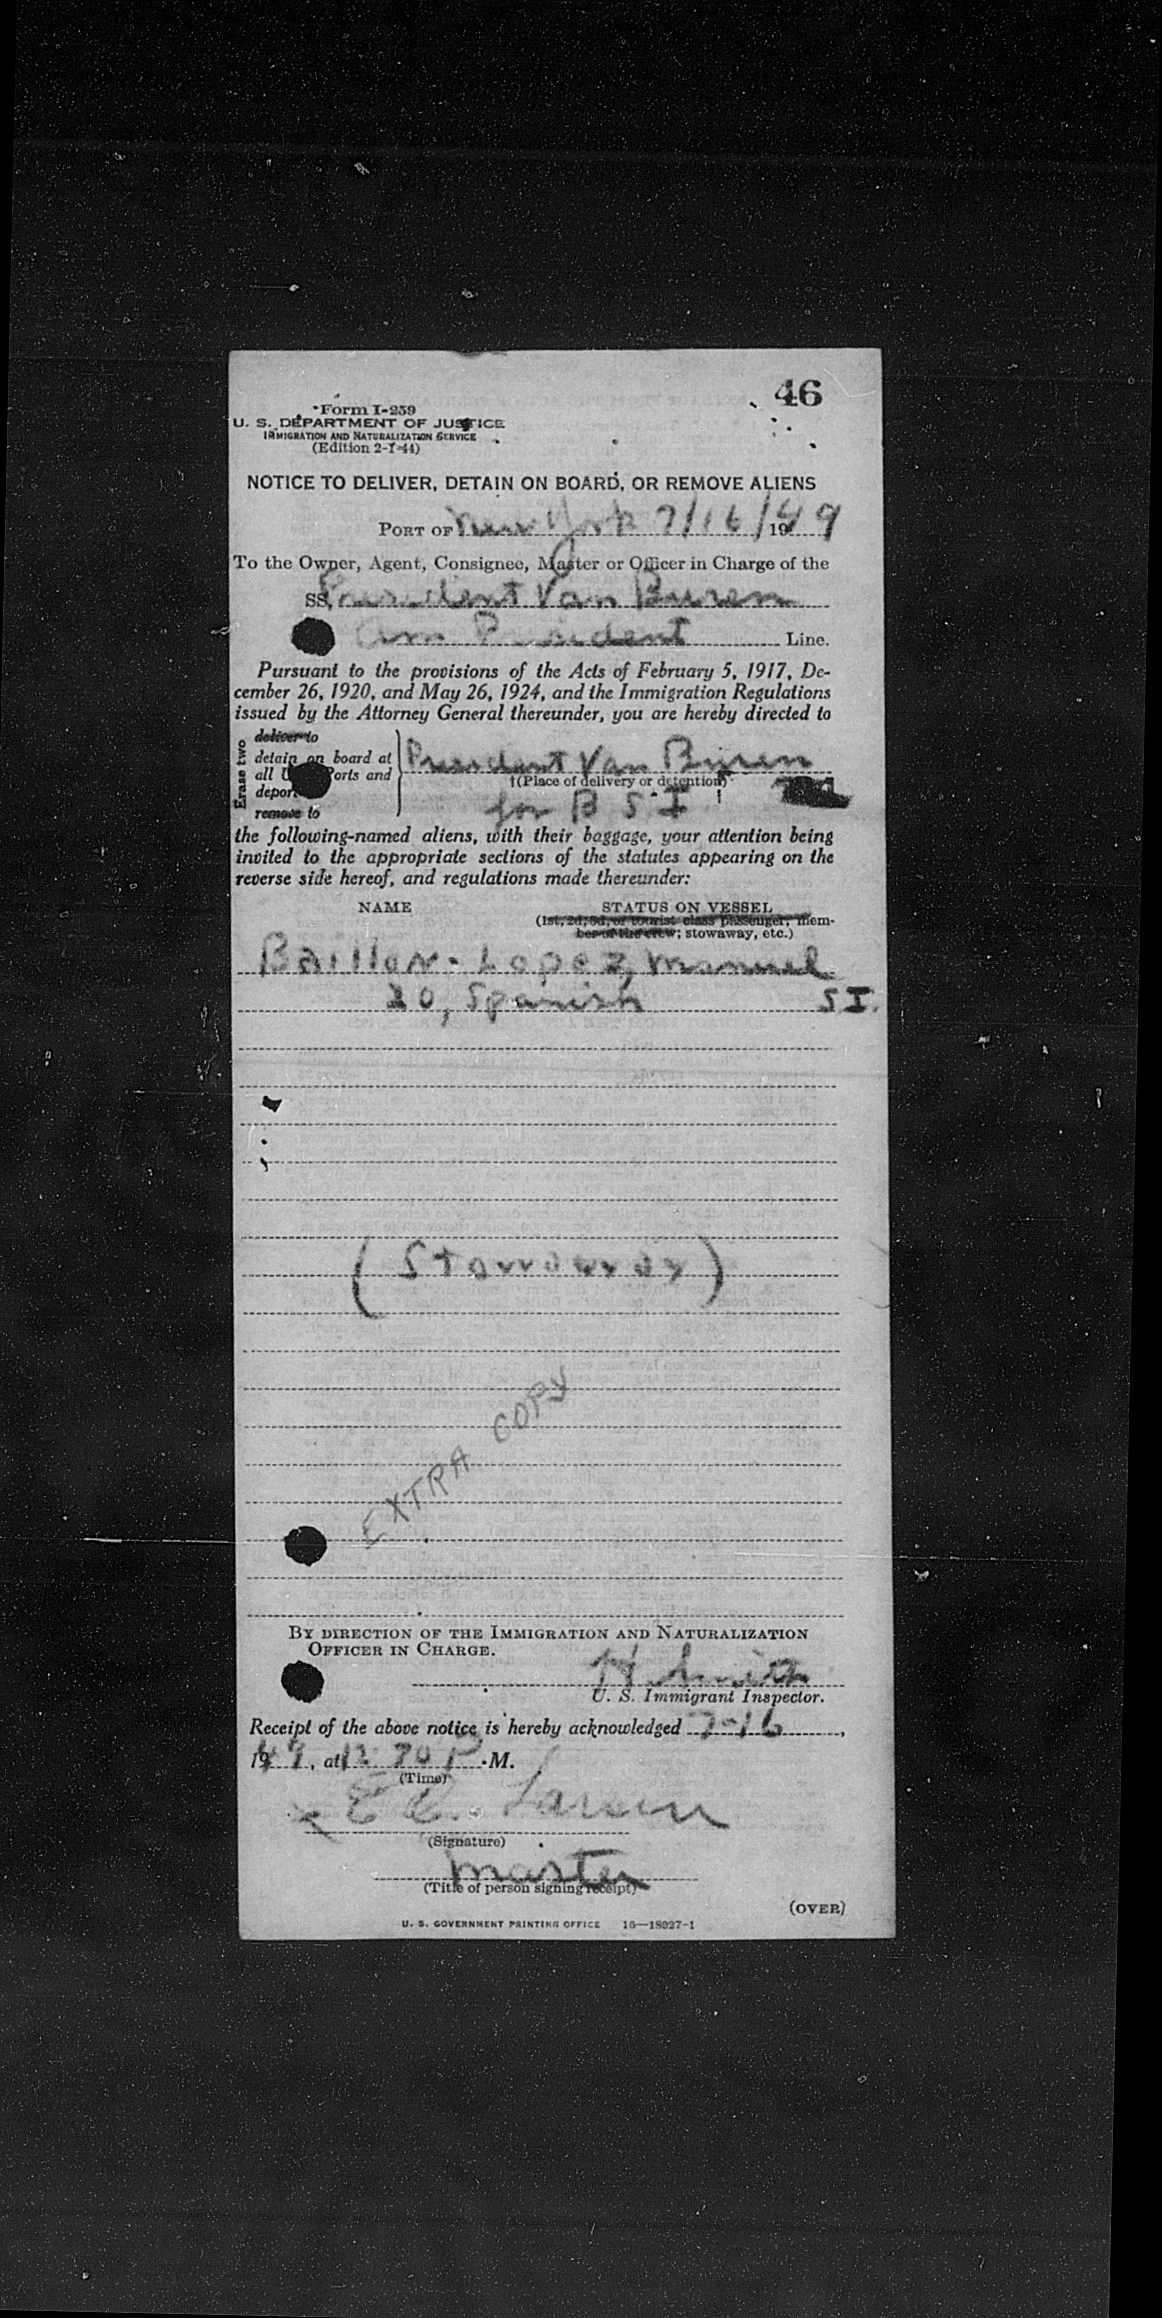 46
Form I-259
U. S. DEPARTMENT OF JUSTICE
IMMIGRATION AND NATURALIZATION SERVICE
(Edition 2-1-44)
NOTICE TO DELIVER, DETAIN ON BOARD, OR REMOVE ALIENS
PORT OF New York 7/16/1949
To the Owner, Agent, Consignee, Master or Officer in Charge of the
SS. President Van Buren
Am President Line.
Pursuant to the provisions of the Acts of February 5, 1917, De-
cember 26, 1920, and May 26, 1924, and the Immigration Regulations
issued by the Attorney General thereunder, you are hereby directed to
Erase two
deliver to
detain on board at
all U Ports and
depor
remove to
President Van Buren
†(Place of delivery or detention)
for B S I
the following-named aliens, with their baggage, your attention being
invited to the appropriate sections of the statutes appearing on the
reverse side hereof, and regulations made thereunder:
NAME
STATUS ON VESSEL
(1st, 2d, 3d, or tourist class passenger; mem-
ber of the crew; stowaway, etc.)
Baillon-Lopez, Manuel
20, Spanish S.I.
(Stowaway)
EXTRA COPY
BY DIRECTION OF THE IMMIGRATION AND NATURALIZATION
OFFICER IN CHARGE.
H Smith
U. S. Immigrant Inspector.
Receipt of the above notice is hereby acknowledged 7-16,
1949, at P. M.
(Time)
E Larsen
(Signature)
Master
(Title of person signing receipt)
(OVER)
U. S. GOVERNMENT PRINTING OFFICE 16—18927-1